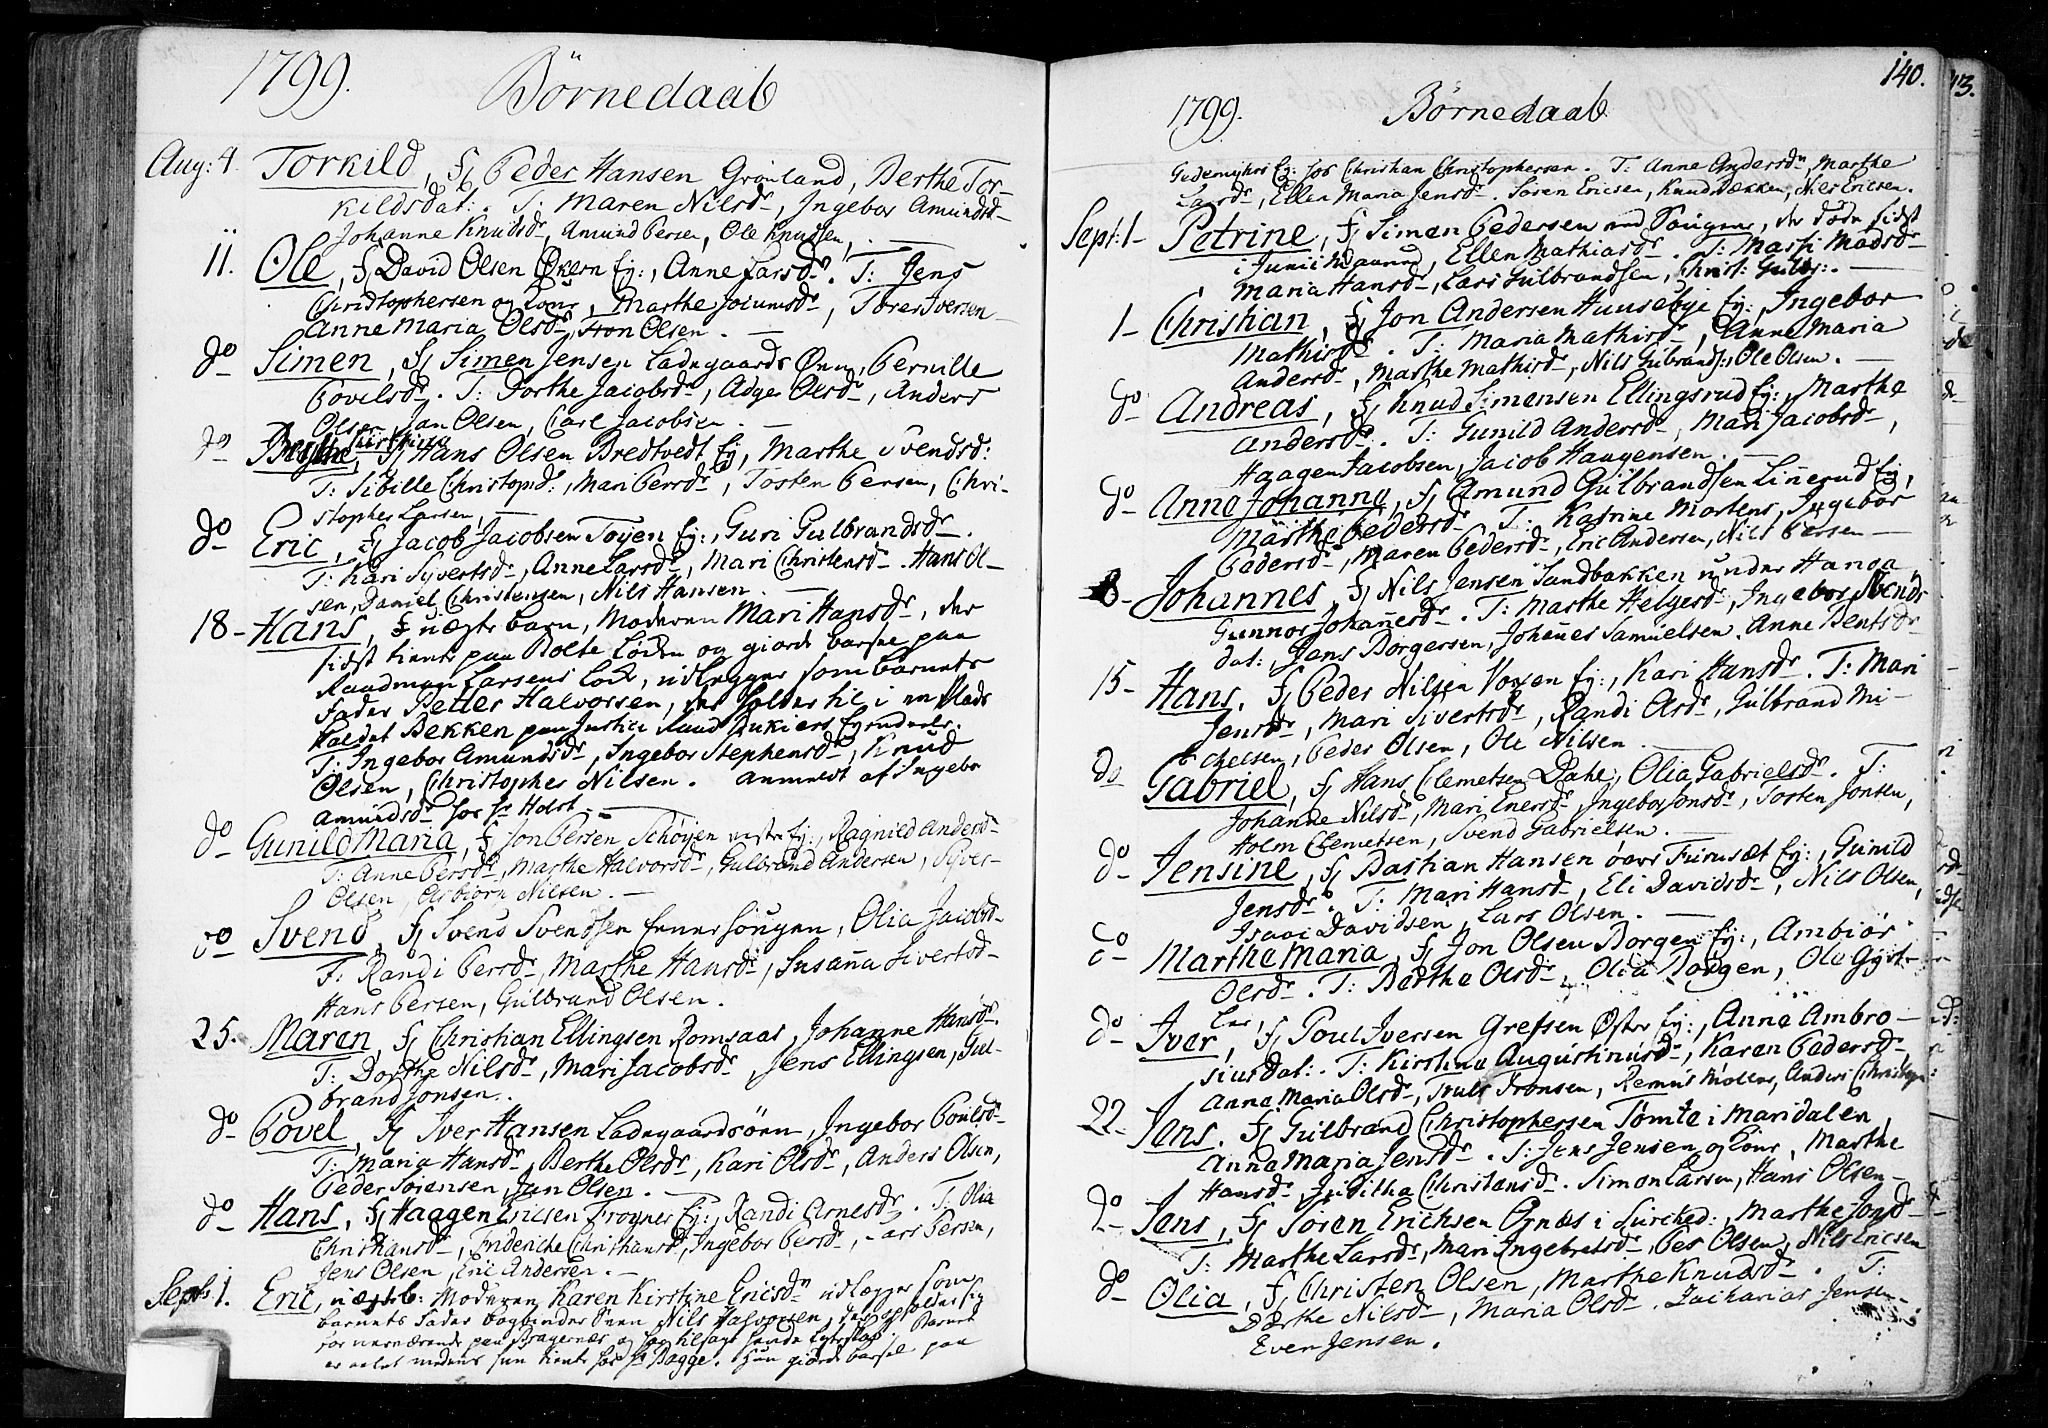 1799. Börnedaab
Aug: 4. Torkild, f Peder Hansen Grönland, Berthe Tor-
kildsdat:. T: Maren Nilsd, Ingebor Amundsd
Johanne Knudsd, Amund Persen, Ole Knudsen,
11. Ole, f David Olsen Økern Ej:, Anne Larsd. T: Jens
Christophersen og Kone, Marthe Jocumsd, Tores Iversen
Anne Maria Olsd, Tron Olsen.
do Simen, f Simen Jensen Ladegaards Øen, Pernille
Povelsd. T: Dorthe Jacobsd, Olsd, Anders
Olsen, Jan Olsen, Carl Jacobsen.
do f Hans Olsen Bredtvedt Ej, Marthe Svendsd:
T: Sibille Christopd:, Mari Persd, Tosten Persen, Chri-
stopher Larsen,
do Eric, f Jacob Jacobsen Töyen Ej:, Guri Gulbrandsd.
T: Kari Syvertsd, Anne Larsd, Mari Christensd. Hans Ol-
sen, Daniel Christensen, Nils Hansen.
18 - Hans, f uægte barn, Moderen Mari Hansd, der
sidst tiente paa Bolte Löken og giorde barsel paa
Raadman Larsens Löke, udlegger som barnets
fader Petter Halvorsen, der holder til i en Plads
kaldet Bekken paa Justice Raad
T: Ingebor Amundsd, Ingebor Stephensd, Knud
Olsen, Christopher Nilsen. anmeldt af Ingebor
Amundsd hos hr Holst.
do Gunild Maria, f Jon Persen Schöyen vestre Ej:, Ragnild Andersd
T: Anne Persd, Marthe Halvorsd, Gulbrand Andersen, Syver
Olsen, Asbiörn Nilsen.
do Svend, f Svend Svendsen Olia Jacobsd
T: Randi Persd, Marthe Hansd, Susanna Sivertsd
Hans Persen, Gulbrand Olsen.
25. Maren, f Christian Ellingsen Romsaas, Johanne Hansd.
T: Dorthe Nilsd, Mari Jacobsd, Jens Ellingsen, Gul-
brand Jonsen.
do Povel, f Iver Hansen Ladegaardsöen, Ingebor Poulsd
T: Maria Hansd, Berthe Olsd, Kari Olsd, Anders Olsen,
Peder Sörensen, Jan Olsen.
do Hans, f Haagen Ericsen Frogner Ej:, Randi Arnesd. T: Olia
Christiansd, Frideriche Christiansd, Ingebor Persd, Lars Persen,
Jens Olsen, Eric Andersen.
Sept: 1. Eric, uægte b: Moderen Karen Kirstine Ericsd udlegger som
barnets fader bogbinder Svenn Nils Halvorsen, der opholder sig
for nærværende paa Bragernæs og har tilsagt hende Barnet
er avlet medens hun tiente hos hr Bagge. Hun giorde barsel paa
140.
13.
1799. Börnedaab
Ej: hos Christian Christophersen. T: Anne Andersd, Marthe
Larsd, Ellen Maria Jensd. Sören Ericsen, Knud Bekken, Nils Ericsen.
Sept: 1 - Petrine, f Simen Pedersen der döde sidst
i Junii Maaned, Ellen Mathiasd. T: Marthe Madsd
Maria Hansd, Lars Gulbrandsen, Christ: Gulbr:.
1 - Christian, f Jon Andersen Huusebye Ej:, Ingebor
Mathisd. T: Maria Mathisd, Anne Maria
Andersd, Marthe Mathisd, Nils Gulbrands:, Ole Olsen.
do Andreas, f Knud Simensen Ellingsrud Ej:, Marthe
Andersd. T: Gunild Andersd, Mari Jacobsd,
Haagen Jacobsen, Jacob Haagensen.
do Anne Johanne, f Amund Gulbrandsen Linnerud Ej,
Marthe Pedersd. T: Katrine Mortens, Ingebor
Pedersd, Maren Pedersd, Eric Andersen, Nils Persen
8 - Johannes, f Nils Jensen Sandbakken under Hanga
Gunnor Johannesd. T: Marthe Helgesd, Ingebor Svends
dat:, Jens Borgersen, Johannes Samuelsen. Anne Bentsd
15 - Hans, f Peder Nilsen Voxen Ej:, Kari Hansd. T: Mari
Jensd, Mari Sivertsd, Randi Olsd, Gulbrand Mi-
chelsen, Peder Olsen, Ole Nilsen.
do Gabriel, f Hans Clemetsen Dahl:, Olia Gabrielsd. T:
Johanne Nilsd, Mari Enersd, Ingebor Jonsd, Tosten Jonsen,
Holm Clemetsen, Svend Gabrielsen.
do Jensine, f Bastian Hansen övre Furusæt Ej:, Gunild
Jensd. T: Mari Hansd, Eli Davidsd, Nils Olsen,
Isaac Davidsen, Lars Olsen.
do Marthe Maria, f Jon Olsen Borgen Ej:, Ambiör
Olsd. T: Berthe Olsd, Olia Borgen, Ole
do Iver, f Poul Iversen Grefsen Øster Ej:, Anne Ambro-
siusdat:. T: Kirstine Augustinusd, Karen Pedersd,
Anne Maria Olsd, Truls Tronsen, Rasmus Möller, Anders Christoph:
22 - Jens, f Gulbrand Christophersen Tömte i Maridalen,
Anne Maria Jensd. T: Jens Jensen og Kone, Marthe
Hansd, Juditha Christensd. Simon Larsen, Hans Olsen
do Jens, f Sören Erichsen Ognæs i Sörcked:, Marthe Jonsd
T: Marthe Larsd, Mari Ingebretsd, Per Olsen, Nils Ericsen
do Olia, f Christen Olsen, Marthe Knudsd. T:
Dorthe Nilsd, Maria Olsd. Zacharias Jensen
Even Jensen.